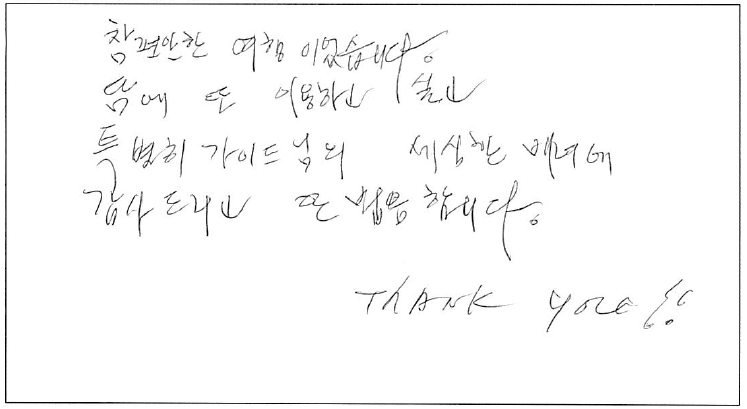 참 편안한 여행 이었습니다.
담에 또 이용하고 싶고
특별히 가이드님의 세심한 배려에
감사드리고 또 합니다.
THANK YOU!!